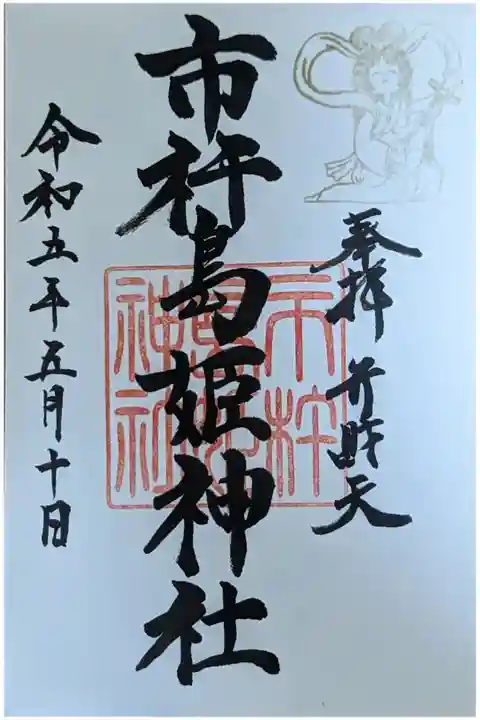 奉拝 弁財天
市杵島姫神社
市杵島姫神社
令和五年五月十日